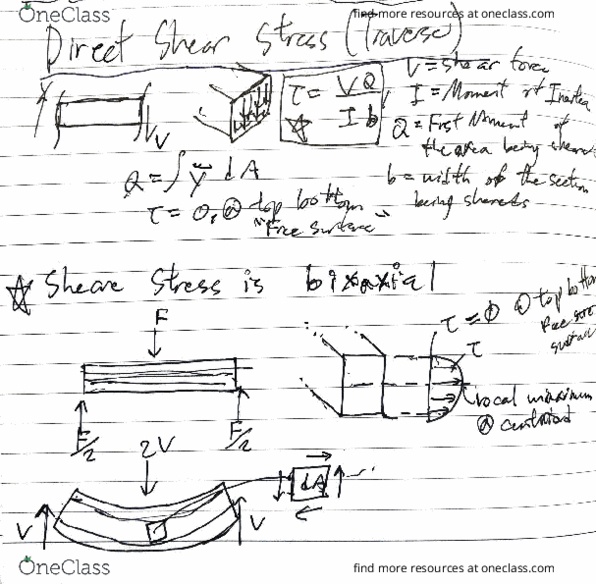 OneClass
find more resources at oneclass.com
Direct Shear Stress (Traverse)
V = shear force
τ = VQ / Ib
I = Moment of Inertia
Q = First Moment of
the area being sheared
V
Q = ∫ y dA
b = width of the section
being sheared
τ = 0, @ top bottom
"Free Surface"
☆ Sheare Stress is biaxial
F
τ = 0 @ top bottom
τ
local
@ centroid
F/2
F/2
2V
dA
V
V
OneClass
find more resources at oneclass.com